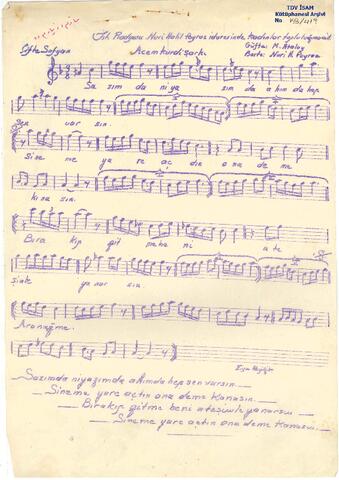 TDV İSAM
Kütüphanesi Arşivi
No
Nuri Halil Poyraz idaresinde
Çifte Sofyan
Acemkurdi şarkı
Güfte: M. Atalay
Beste: Nuri H. Poyraz
Sa zım da niya zım da ahım da hep
sen var sın
Sine me ya re aç dın o na de me
ka na sın
Bıra kıp git me be ni a te
şinle ya nar sın
Aranağme
Sazımda niyazımda ahımda hep sen varsın
Sineme yare açtın ona deme kanasın
Bırakıp gitme beni ateşinle yanarsın
Sineme yare açtın ona deme kanasın